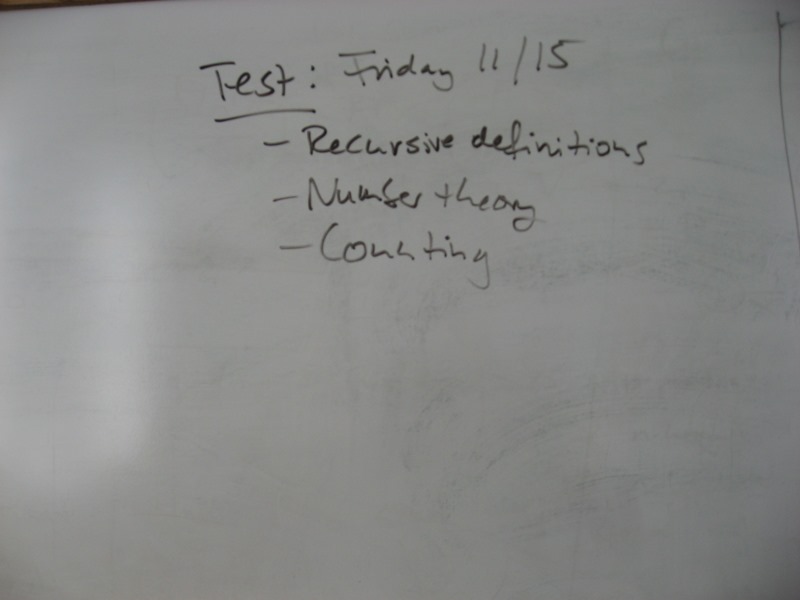 Test: Friday 11/15
- Recursive definitions
- Number theory
- Counting